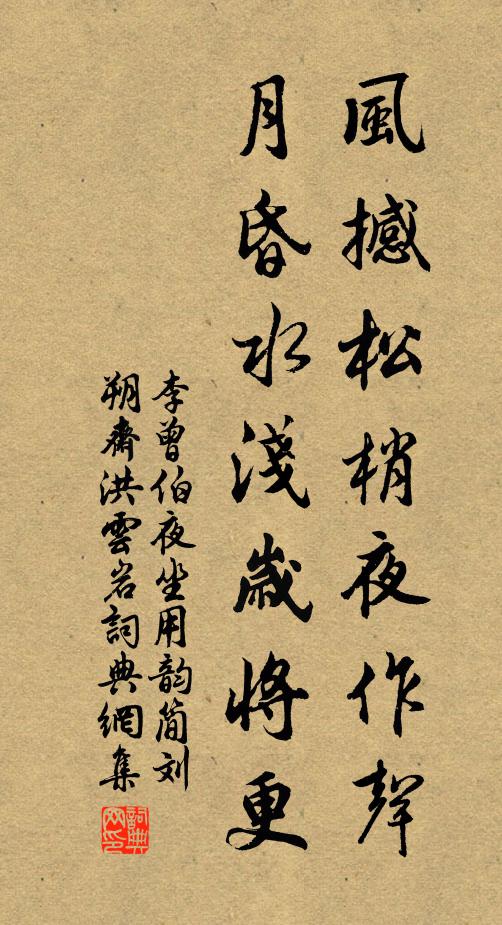 風撼松梢夜作聲
月昏水淺歲將更
李曾伯夜坐用韵簡刘
朔齋洪雲岩詞典網集
詞典网印